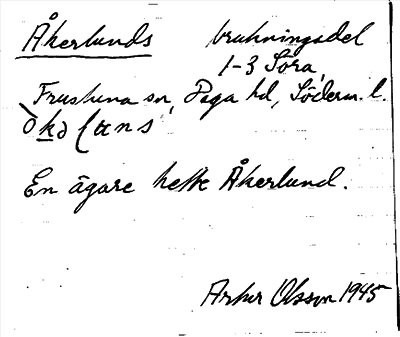 Åkerlunds brukningsdel
1-3 Söra,
Frustuna sn, Daga hd, Söderm. l.
En ägare hette Åkerlund.
Arthur Olsson 1945